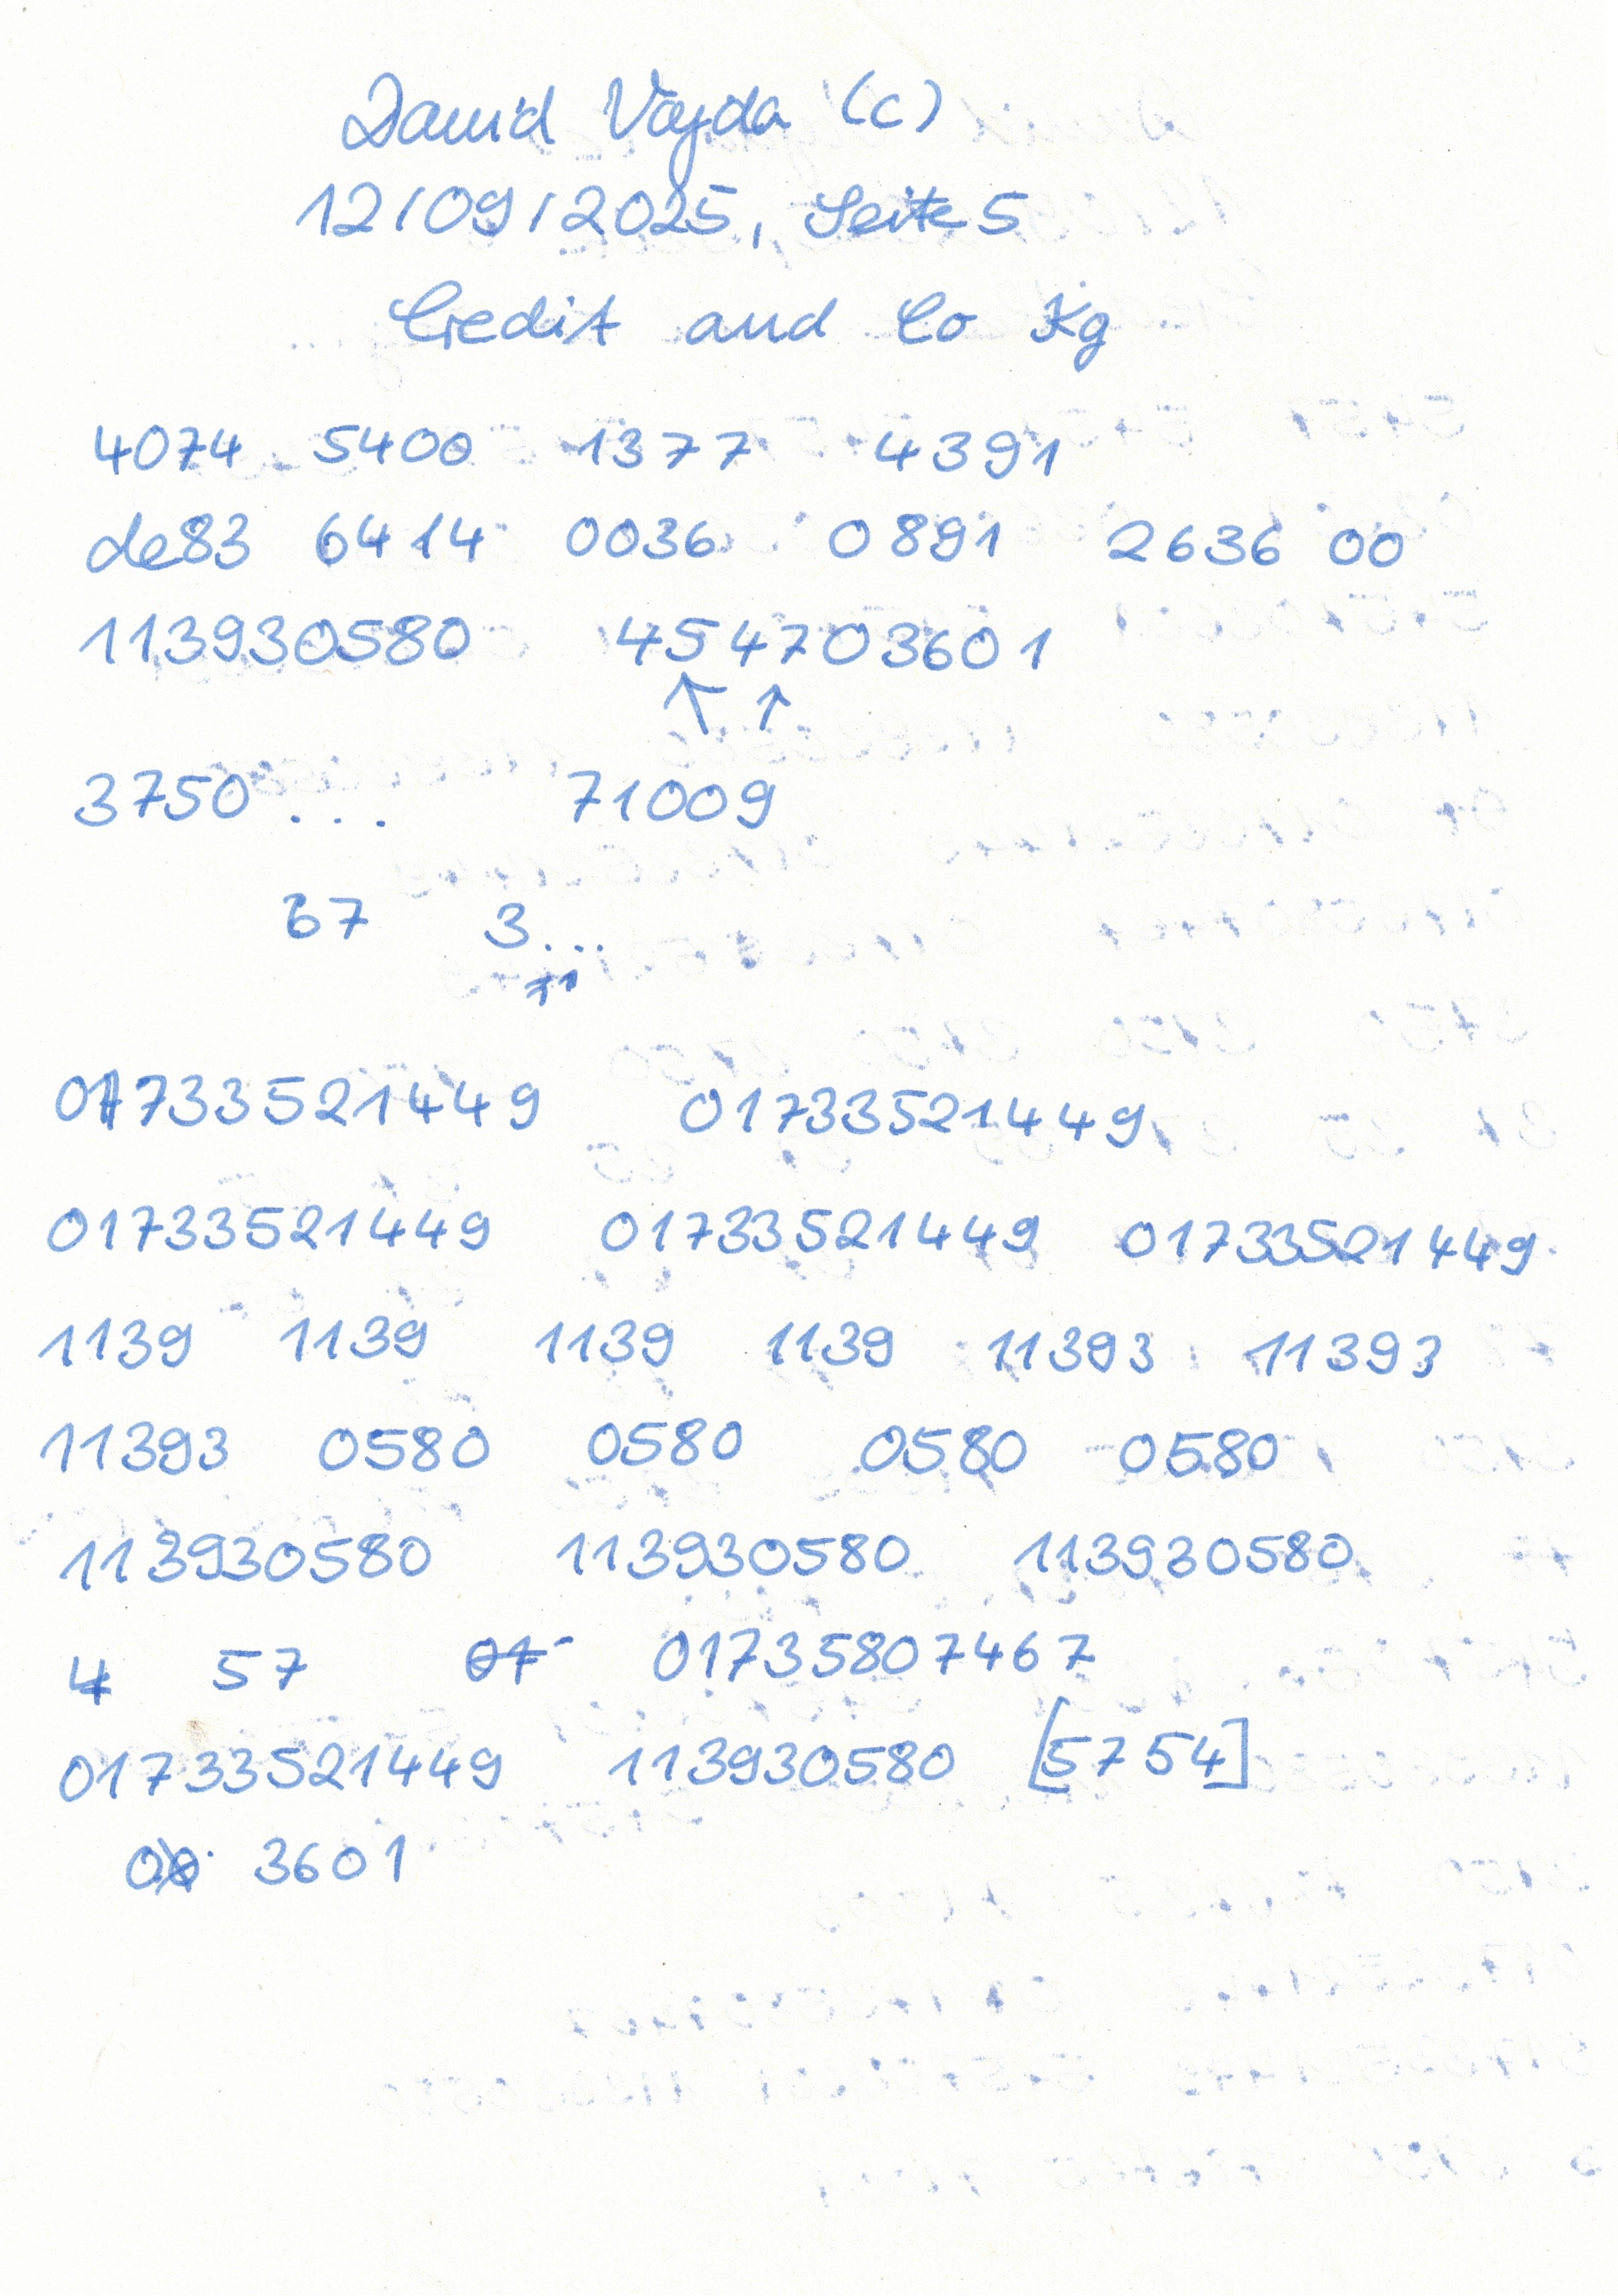 David Vajda (c)
12/09/2025, Seite 5
Credit and Co Kg
4074 5400 1377 4391
de83 6414 0036 0891 2636 00
113930580 454703601
3750 ... 71009
67 3...
11
01733521449 01733521449
01733521449 01733521449 01733521449
1139 1139 1139 1139 11393 11393
11393 0580 0580 0580 0580
113930580 113930580 113930580
4 57 01 01735807467
01733521449 113930580 [5754]
3601